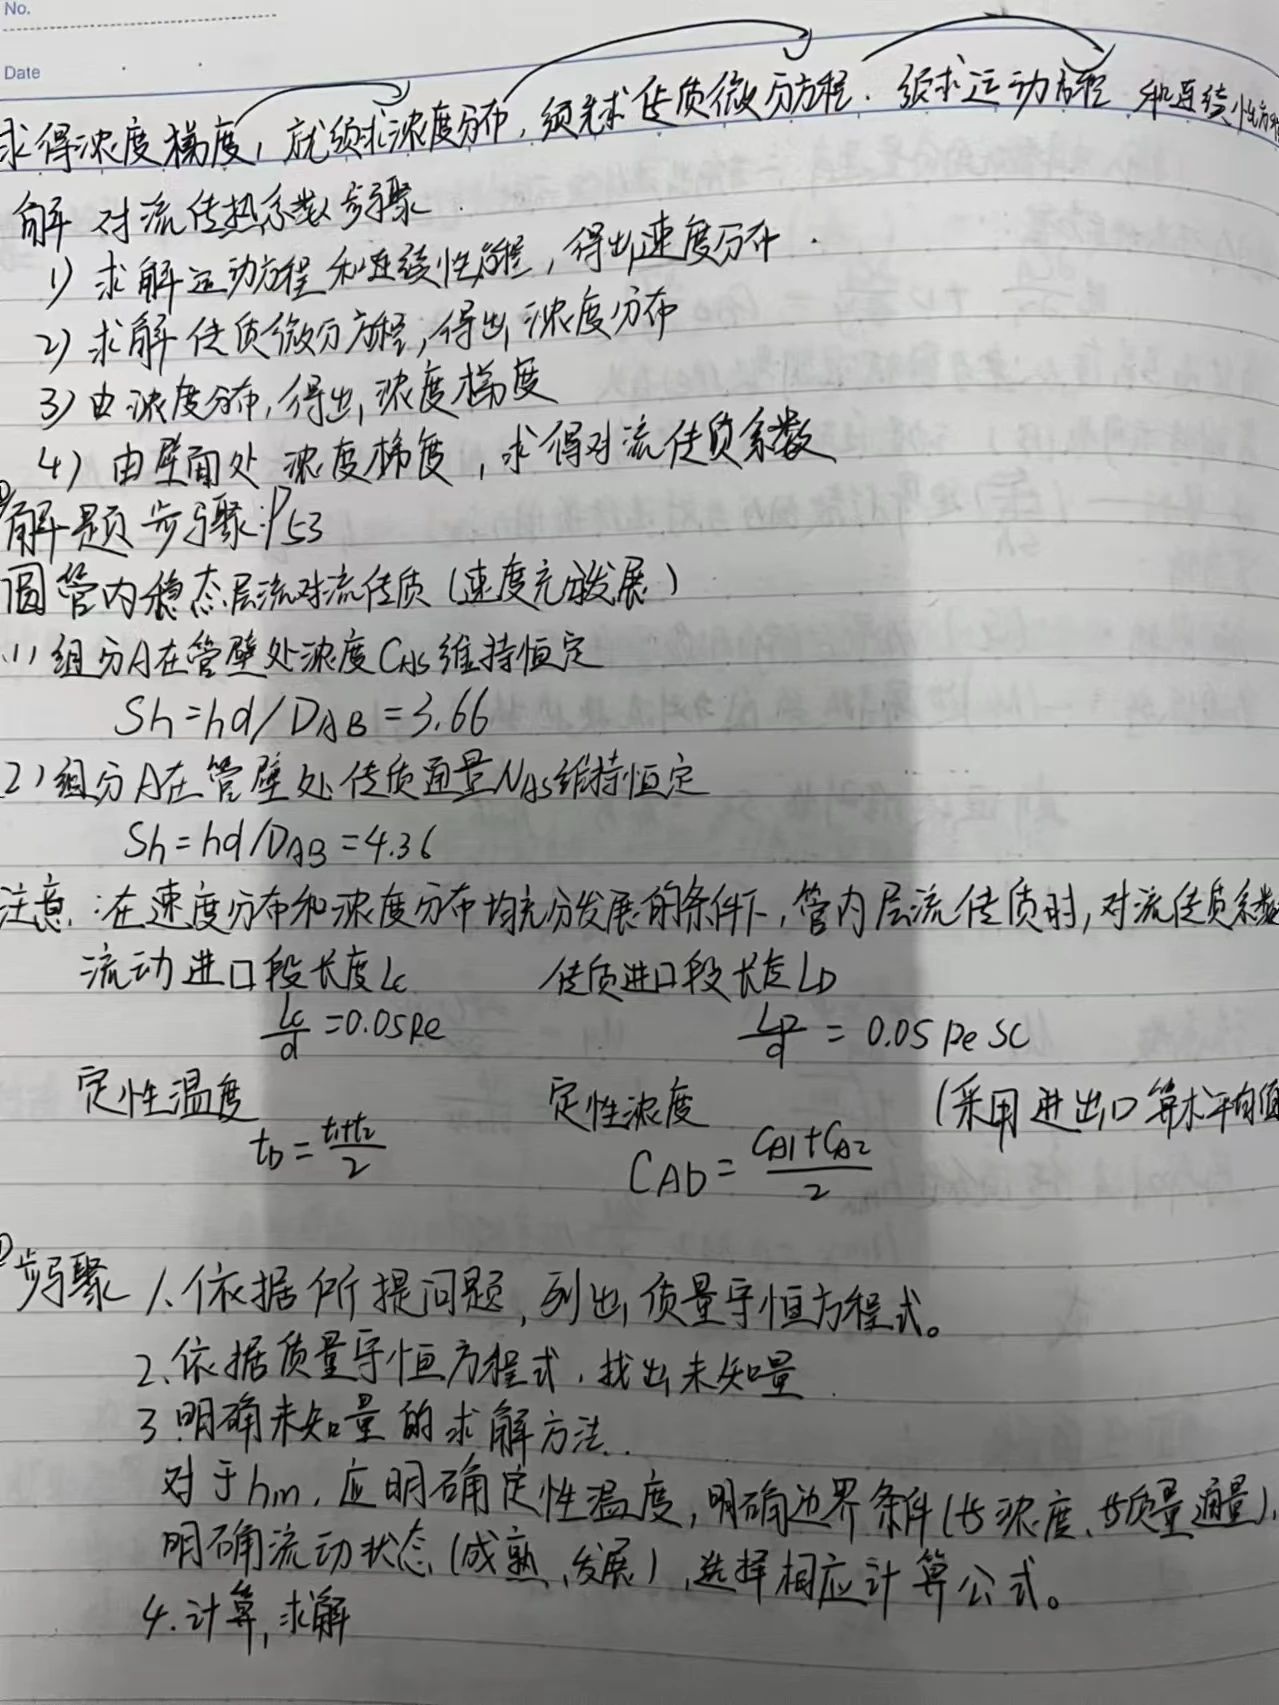 No.
Date
求得浓度梯度，就须求浓度分布，须先求传质微分方程．须求运动方程 和连续性方程
解 对流传热系数步骤．
1）求解运动方程和连续性方程，得出速度分布．
2）求解传质微分方程，得出浓度分布
3）由浓度分布，得出浓度梯度
4）由壁面处 浓度梯度，求得对流传质系数
解题步骤：P53
圆管内稳态层流对流传质（速度充分发展）
(1）组分A在管壁处浓度CAS维持恒定
Sh=hd/DAB=3.66
2）组分A在管壁处传质通量NAS维持恒定
Sh=hd/DAB=4.36
注意：在速度分布和浓度分布均充分发展的条件下，管内层流传质时，对流传质系数
流动进口段长度Lc 传质进口段长度LD
Lc/d=0.05Re LD/d = 0.05 Re SC
定性温度 定性浓度 （采用进出口算术平均值
tb=(t1+t2)/2 CAb=(CA1+CA2)/2
步骤 1、依据所提问题，列出质量守恒方程式。
2、依据质量守恒方程式，找出未知量．
3．明确未知量的求解方法．
对于hm，应明确定性温度，明确边界条件（恒浓度、恒质量通量），
明确流动状态（成熟、发展），选择相应计算公式。
4．计算，求解